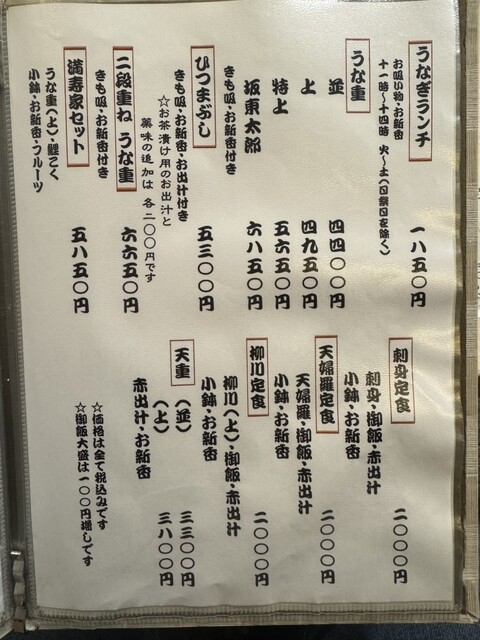 うなぎランチ 一八五〇円
お吸い物・お新香
十一時~十四時 火~土(日祭日を除く)
うな重
並 四四〇〇円
上 四九五〇円
特上 五六五〇円
坂東太郎 六八五〇円
きも吸・お新香付き
ひつまぶし 五三〇〇円
きも吸・お新香・お出汁付き
☆お茶漬け用のお出汁と
薬味の追加は 各二〇〇円です
二段重ね うな重 六六五〇円
きも吸・お新香付き
満寿家セット 五八五〇円
うな重(上)・鯉こく
小鉢・お新香・フルーツ
刺身定食 二〇〇〇円
刺身・御飯・赤出汁
小鉢・お新香
天婦羅定食 二〇〇〇円
天婦羅・御飯・赤出汁
小鉢・お新香
柳川定食 二〇〇〇円
柳川(上)・御飯・赤出汁
小鉢・お新香
天重 (並) 三三〇〇円
(上) 三八〇〇円
赤出汁・お新香
☆価格は全て税込みです
☆御飯大盛は一〇〇円増しです